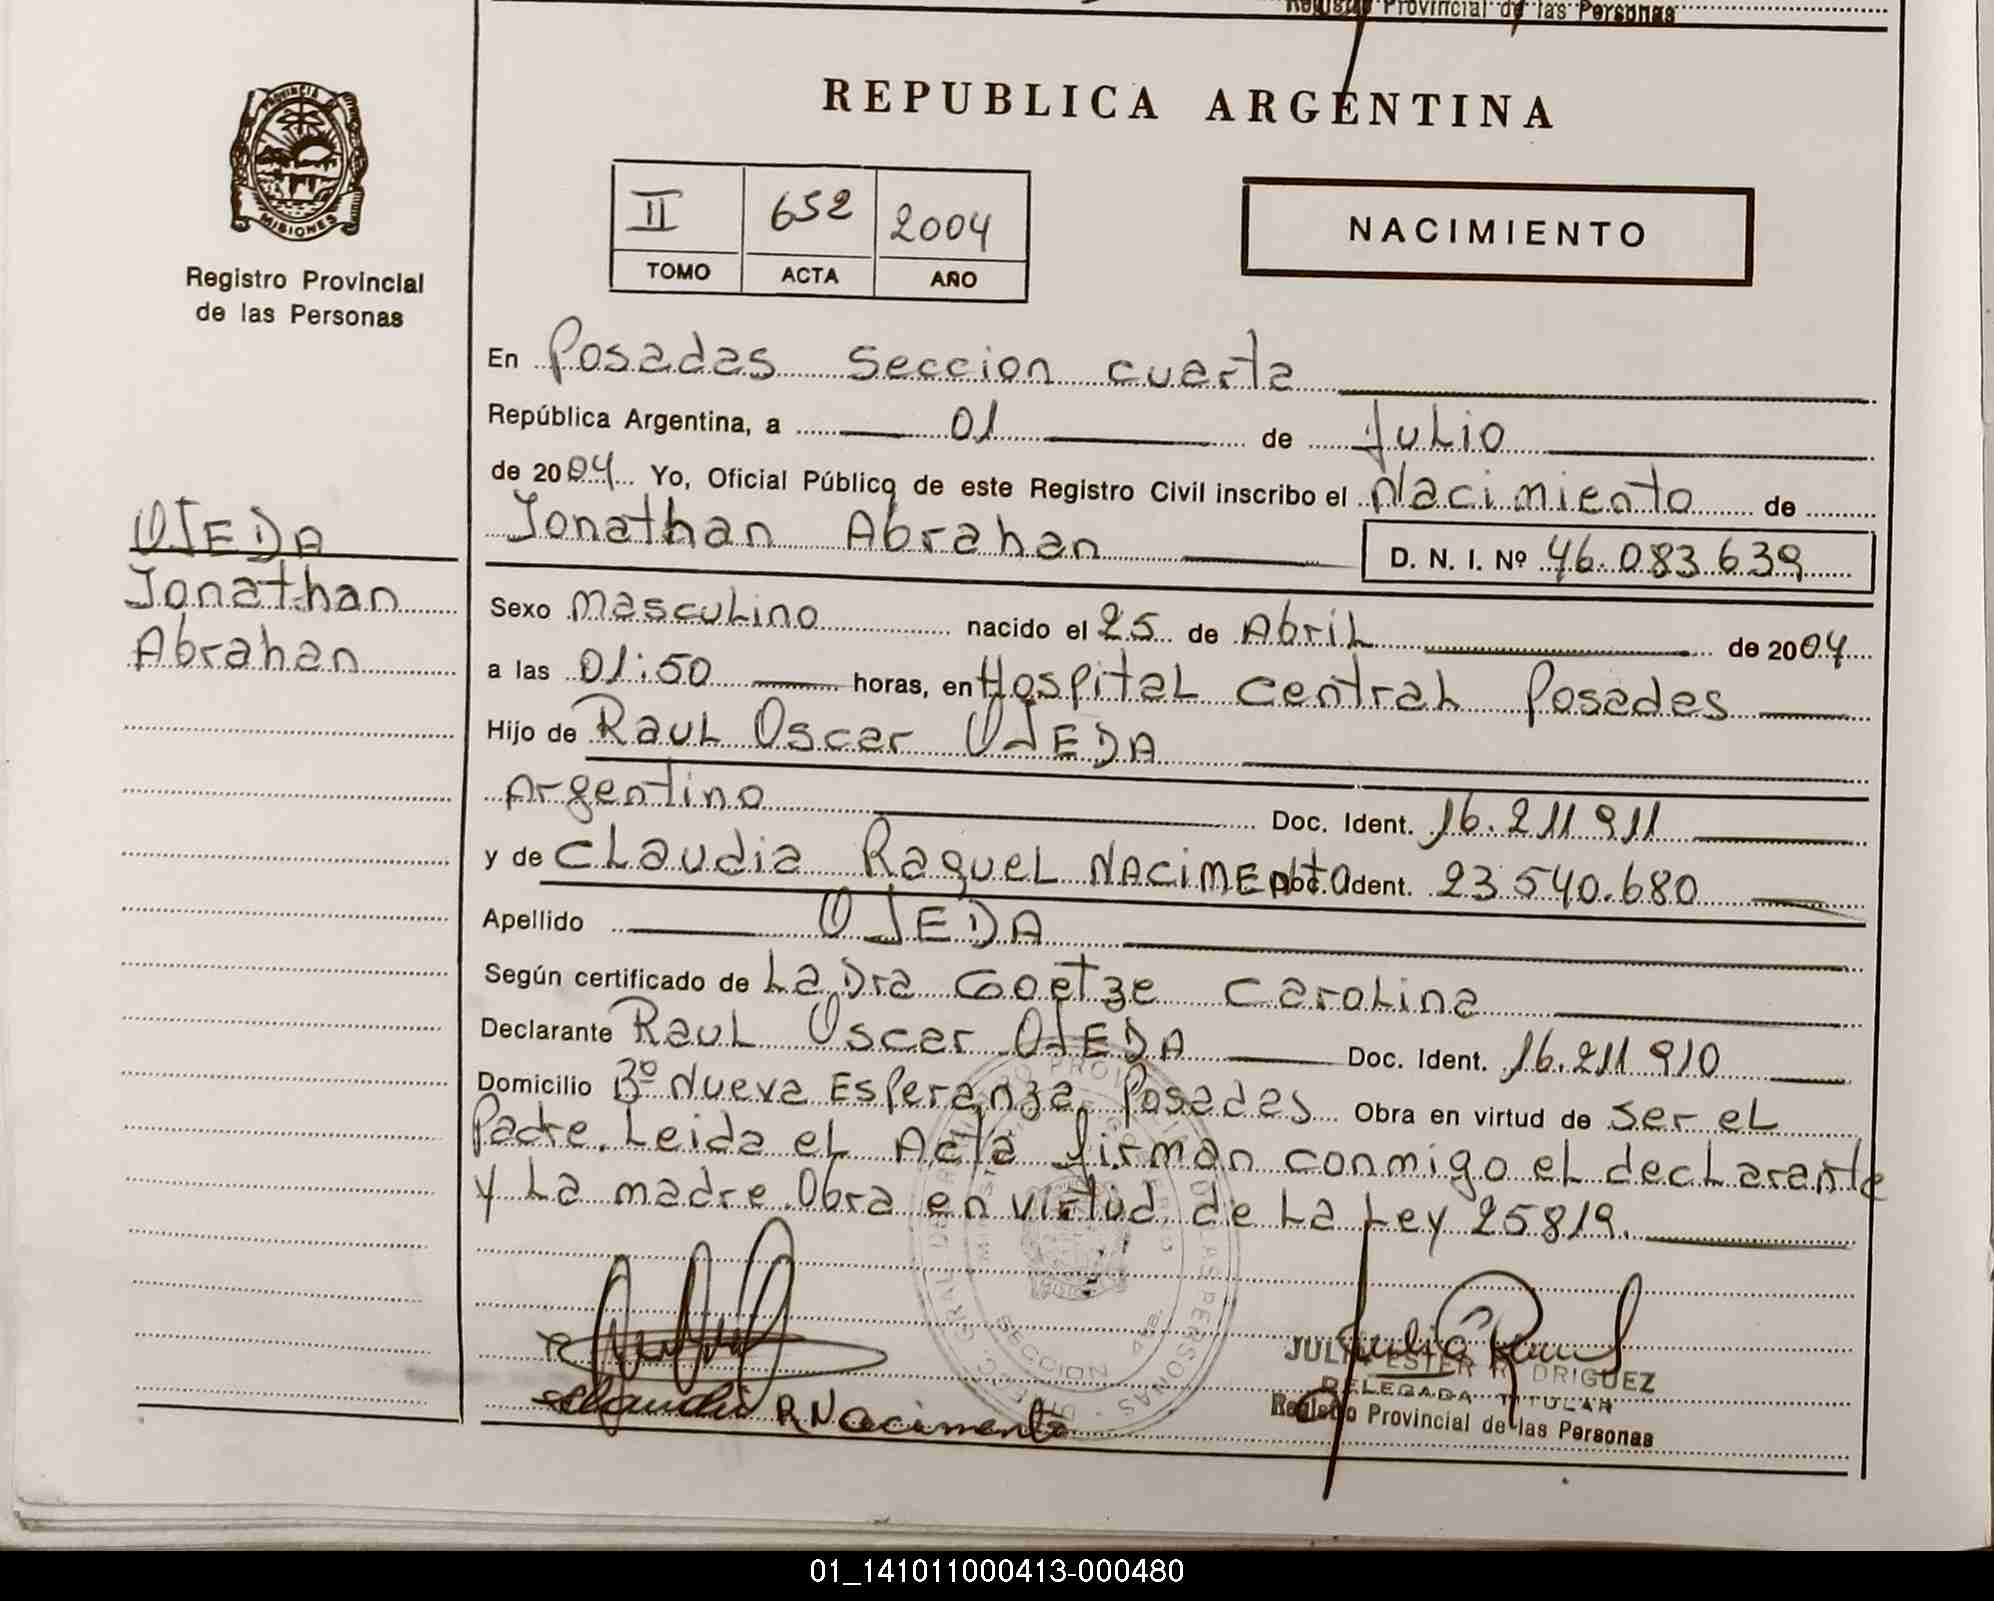 Registro Provincial de las Personas
PROVINCIA DE
MISIONES
Registro Provincial
de las Personas
OJEDA
Jonathan
Abrahan
REPUBLICA ARGENTINA
II 652 2004
TOMO ACTA AÑO
NACIMIENTO
En Posadas seccion cuarta
República Argentina, a 01 de Julio
de 2004 Yo, Oficial Público de este Registro Civil inscribo el Nacimiento de
Jonathan Abrahan D. N. I. Nº 46.083.639
Sexo masculino nacido el 25 de Abril de 2004
a las 01:50 horas, en Hospital Central Posadas
Hijo de Raul Oscar OJEDA
Argentino Doc. Ident. 16.211.911
y de Claudia Raquel NACIMENTO Doc. Ident. 23.540.680
Apellido OJEDA
Según certificado de La Dra Goetze Carolina
Declarante Raul Oscar OJEDA Doc. Ident. 16.211.910
Domicilio Bº Nueva Esperanza Posadas Obra en virtud de ser el
Padre. Leida el Acta firman conmigo el declarante
y La madre Obra en virtud de La Ley 25819.
R Nacimento
JULIA ESTER RODRIGUEZ
DELEGADA TITULAR
Registro Provincial de las Personas
01_141011000413-000480